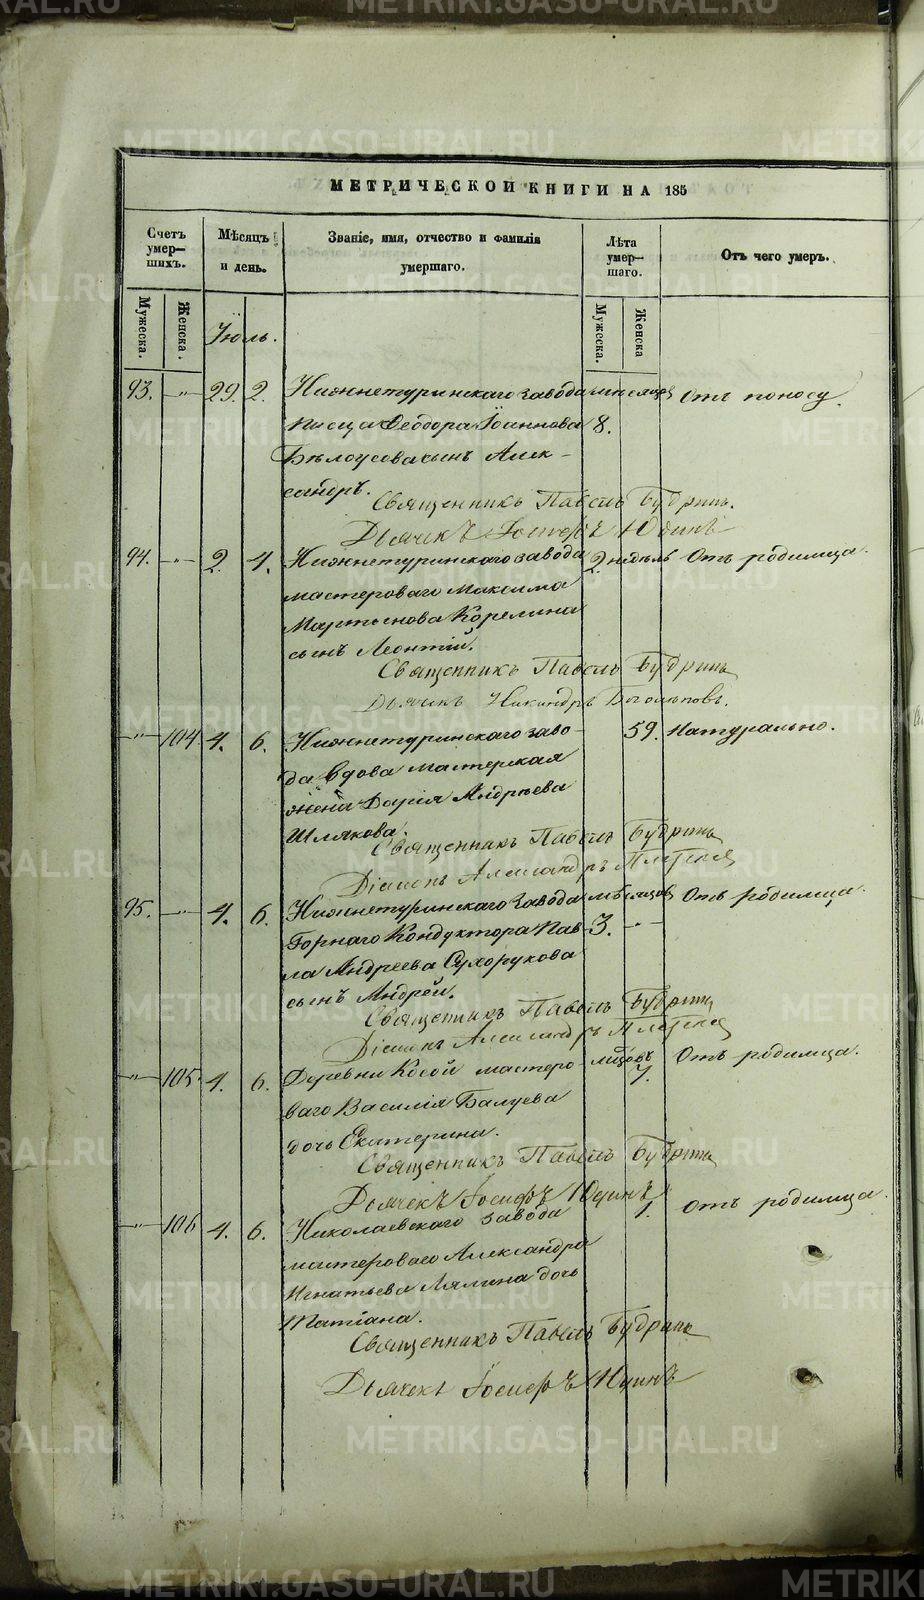 МЕТРИЧЕСКОЙ КНИГИ НА 185
Счетъ умер-
шихъ.
Мѣсяцъ
и день.
Званіе, имя, отчество и фамилія
умершаго.
Лѣта
умер-
шаго.
Отъ чего умеръ.
Мужеска.
Женска.
Мужеска.
Женска
Іюль.
93. -"- 29. 2. Нижнетуринскаго завода мѣсяцовъ Отъ поносу.
писца Ѳеодора Іоаннова 8.
Бѣлоусова сынъ Алек-
сандръ.
Священникъ Павелъ Будринъ.
Дьячекъ Іосифъ Юдинъ
94. -"- 2. 4. Нижнетуринскаго завода 2 недѣль Отъ родимца.
мастероваго Максима
Мартынова Корелина
сынъ Леонтій.
Священникъ Павелъ Будринъ
Дьячекъ Никандръ
-"- 104 4. 6. Нижнетуринскаго заво- 59. Натурально.
да Вдова мастерская
жена Дарія Андреева
Шлякова.
Священникъ Павелъ Будринъ
Діаконъ Александръ
95. -"- 4. 6. Нижнетуринскаго завода мѣсяцовъ Отъ родимца.
Горнаго Кондуктора Пав- 3. -"-
ла Андреева Сухорукова
сынъ Андрей.
Священникъ Павелъ Будринъ
Діаконъ Александръ
-"- 105. 4. 6. Деревни Косой мастеро- мѣсяцовъ Отъ родимца.
ваго Василія Балуева 7.
дочь Екатерина.
Священникъ Павелъ Будринъ
Дьячекъ Іосифъ Юдинъ
-"- 106 4. 6. Николаевскаго завода 1. Отъ родимца.
мастероваго Александра
Игнатьева Лямина дочь
Татіана.
Священникъ Павелъ Будринъ
Дьячекъ Іосифъ Юдинъ
METRIKI.GASO-URAL.RU